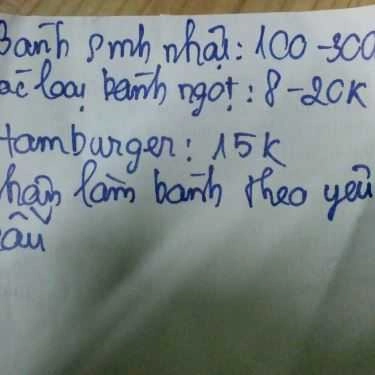 Bánh sinh nhật: 100-300
các loại bánh ngọt: 8-20K
Hamburger: 15K
nhận làm bánh theo yêu
cầu